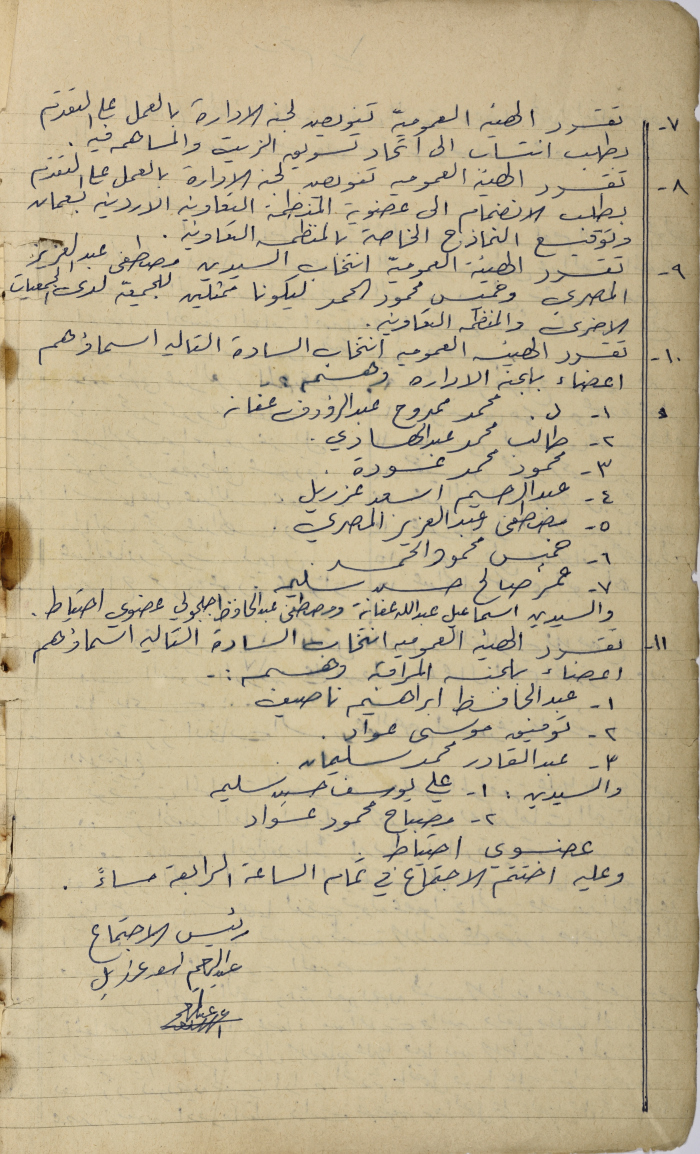 ٧- تقرر الهيئة العمومية تفويض لجنة الادارة بالعمل على التقدم
بطلب انتساب الى اتحاد تسويق الزيت والمساهمة فيه.
٨- تقرر الهيئة العمومية تفويض لجنة الادارة بالعمل على التقدم
بطلب الانضمام الى عضوية المنظمة التعاونية الاردنية بعمان
وتوقيع النماذج الخاصة بالمنظمة التعاونية.
٩- تقرر الهيئة العمومية انتخاب السيدين مصطفى عبد العزيز
المصري وخميس محمود الحمد ليكونا ممثلين للجمعية لدى الجمعيات
الاخرى والمنظمة التعاونية.
١٠- تقرر الهيئة العمومية انتخاب السادة التالية اسماؤهم
اعضاء بلجنة الادارة وهم :-
١- د. محمد ممدوح عبد الرؤوف عفانة
٢- طالب محمد عبد الهادي.
٣- محمود محمد عودة.
٤- عبد الرحيم اسعد عزريل.
٥- مصطفى عبد العزيز المصري.
٦- خميس محمود الحمد.
٧- عمر صالح حسين سليم.
والسيدين اسماعيل عبد الله عفانة ومصطفى عبد الحافظ جلجولي عضوي احتياط.
١١- تقرر الهيئة العمومية انتخاب السادة التالية اسماؤهم
اعضاء بلجنة المراقبة وهم :-
١- عبد الحافظ ابراهيم ناصيف
٢- توفيق موسى عواد.
٣- عبد القادر محمد سليمان.
والسيدين : ١- علي يوسف حسين سليم
٢- مصباح محمود عواد
عضوي احتياط.
وعليه اختتم الاجتماع في تمام الساعة الرابعة مساءً.
رئيس الاجتماع
عبد الرحيم اسعد عزريل